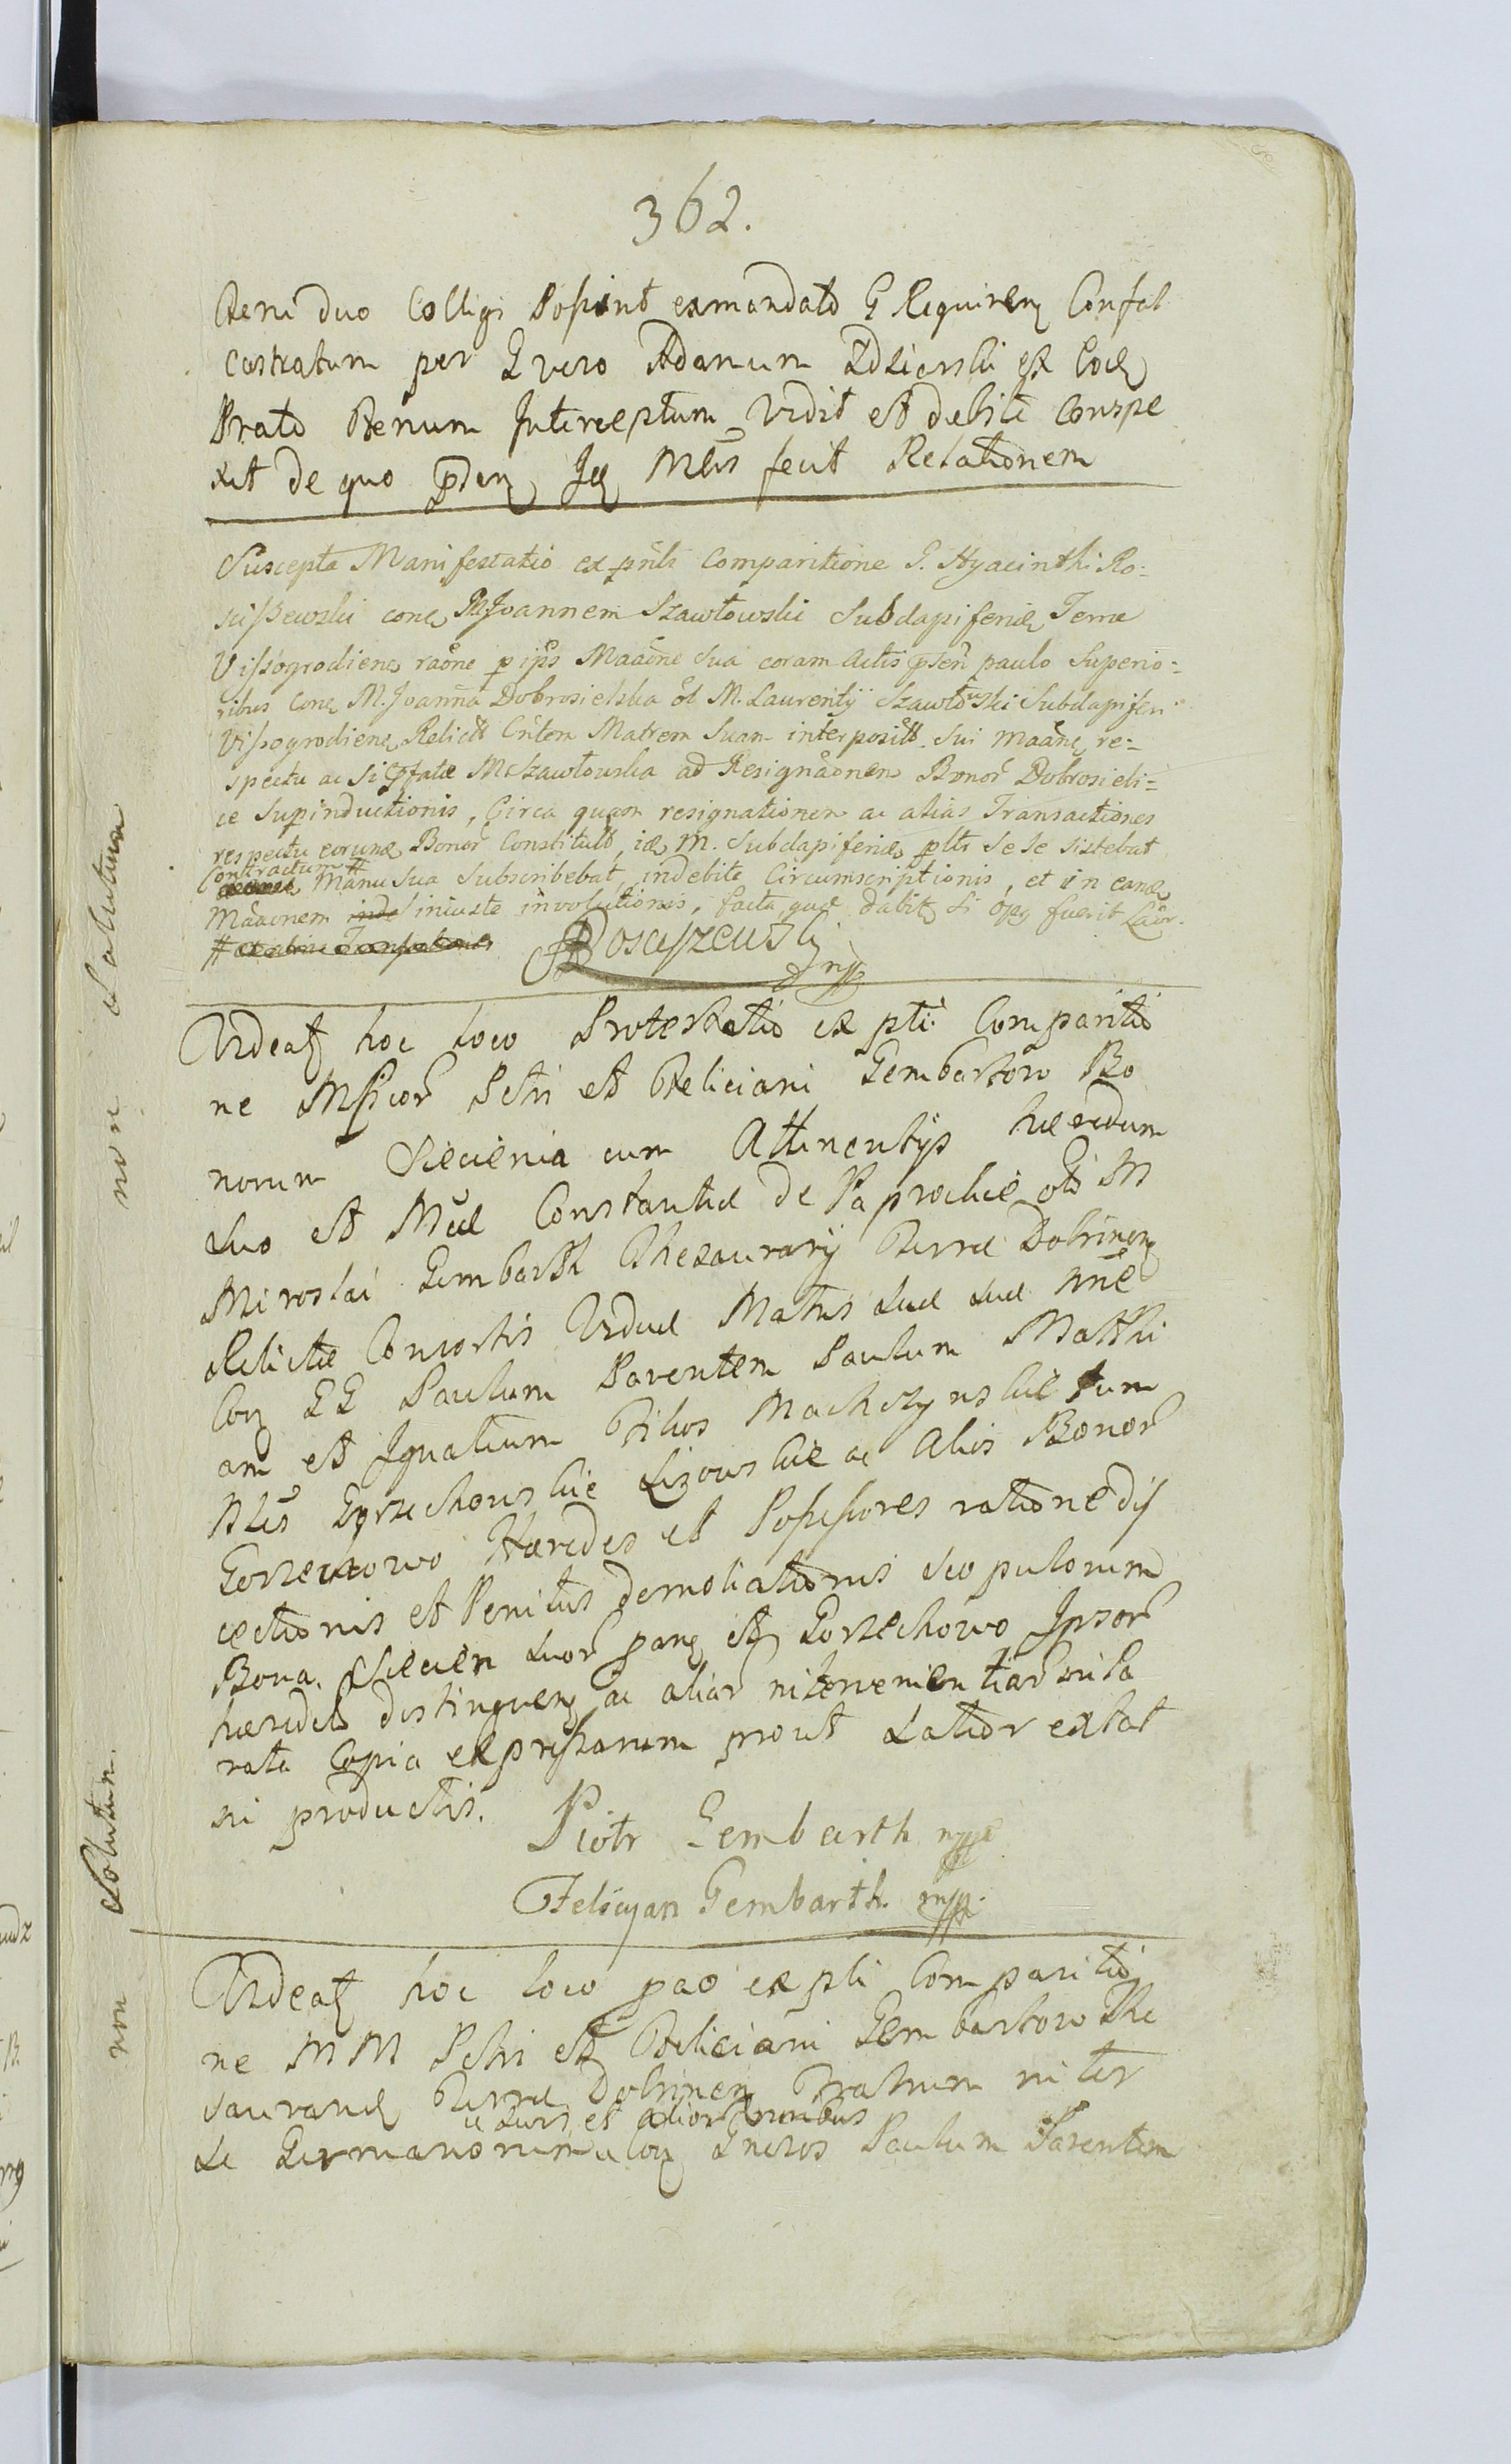 362.
duo Colligi Possint ex mandato G Requiren Confal
castratum per G vero Adamum Zdzierski ex Eod
Prato Fenum Interceptum vidit et debite conspe
xit de quo pden Id Mlis fecit Relationem
Suscepta Manifestatio ex pnli Comparitione G. Hyacinthi Ro-
sciszewski conq M Joannem Szawłowski Subdapiferid Terræ
Vissogrodienq raone p ips Maaone Sua coram Actis psen paulo Superio-
ribus conq M. Joanna Dobrosielska ol M. Laurentÿ Szawłowski Subdapiferi
Vissogrodienq Relict Cnlem Matrem Suam interposito Sui maane re-
spectu ac Si pfatæ M Szawłowska ad Resignaonem Bonor Dobrosieli-
ce Supinductionis, Circa quam resignationem ac alias Transactiones
respectu eorund Bonor Constitutt, id M. Subdapiferid pltr Se Se Sistebat
Contractum #
Manu Sua Subscribebat, indebite Circumscriptionis, et in eand
Maaonem inde iniuste involutionis, facta, quæ dabit Si op9 fuerit Laor.
# et alias Transactiones
Rosciszewski mp
Videat hoc loco Protestatio ex pti Comparitio
ne Mficor Petri et Feliciani Gembartow Bo
norum Siecienia cum Attinentijs hæredum
suo et Mcæ Constantiæ de Paprockie oli M
Miroslai Gembarth Thesaurarij Terræ Dobrinen
Relictæ Consortis Viduæ Matris Suæ Suæ nne
Con GG Paulum Parentem Paulum Matthi
am et Ignatium Filios Machczynskie tum
Nles Gorzechowskie Ligowskie ac Alios Bonor
Gorzechowo Hæredes et Possessores ratione dis
iectionis et Penitus demoliationis Scopulorum
Bona Siecien Suor pang et Gorzechowo Ipsor
hæredit distinguen ac aliar intervenientiar in Pa
rata Copia expressarum prout Latior extat
in productis.
Piotr Gembarth mpp
Felicyan Gembarth mpp.
Videat hoc loco pao ex pli Comparitio
ne MM Petri et Feliciani Gembartow The
saurarid Terræ Dobrinen Fratrum inter
u Suis et alior nnibus
Se Germanorum con Gneros Paulum Parentem
non Solutum
non Solutum.